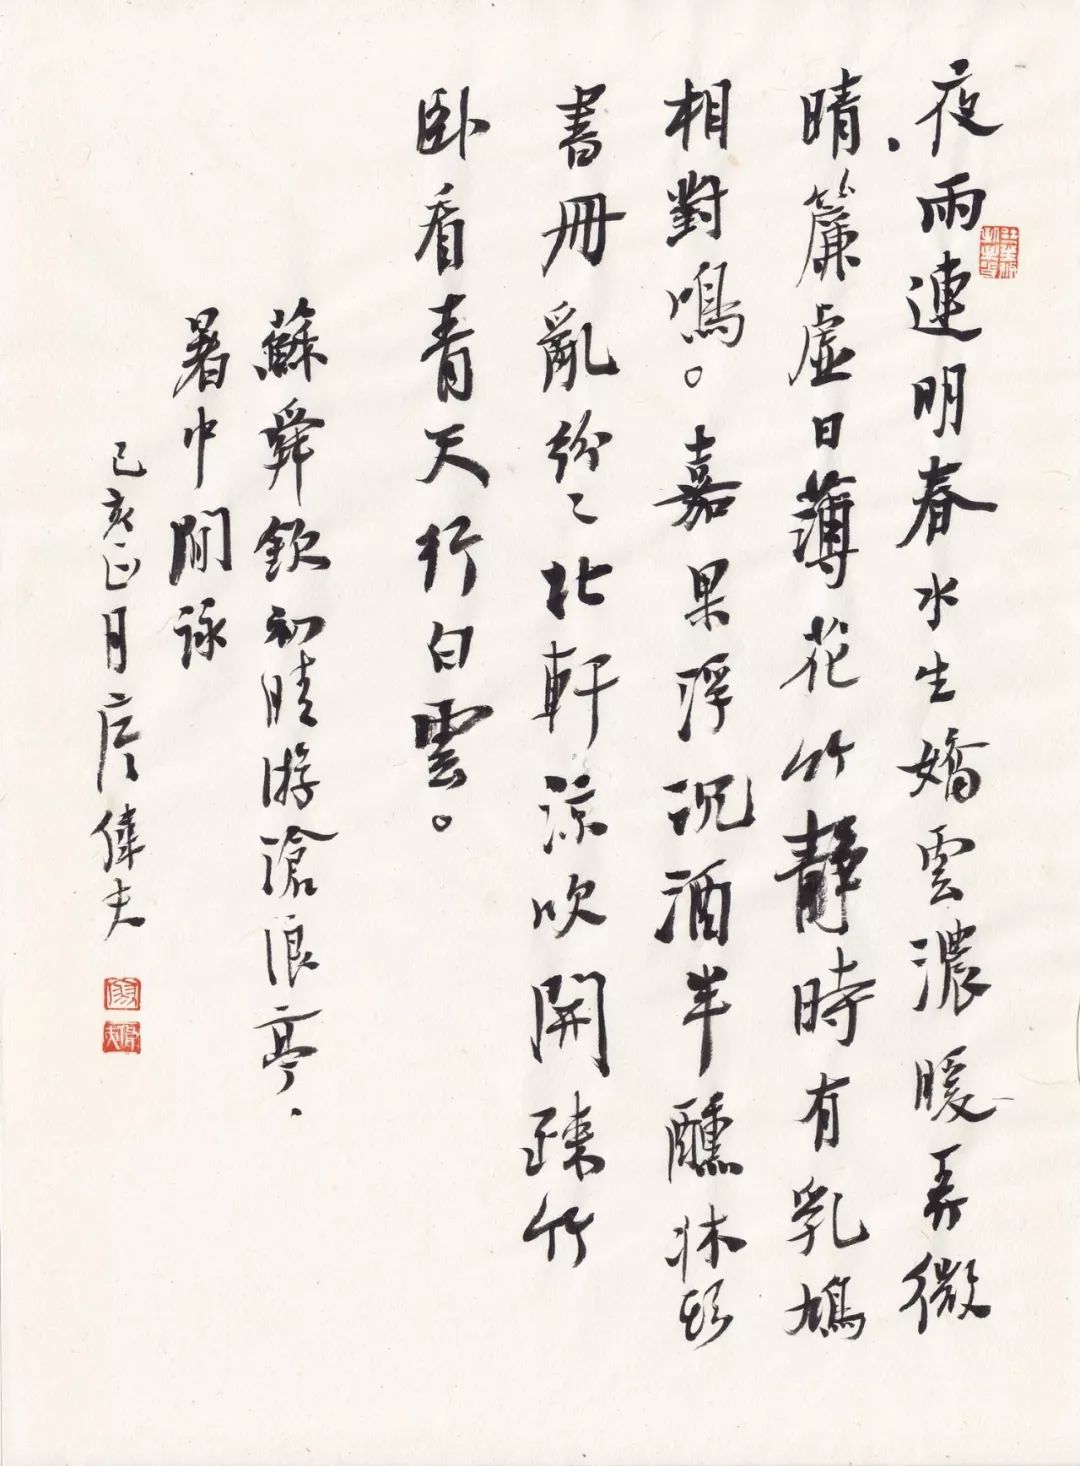 夜雨連明春水生嬌雲濃暖弄微
晴、簾虛日薄花竹靜時有乳鳩
相對鳴。嘉果浮沉酒半醺牀頭
書冊亂紛〻北軒涼吹開疎竹
卧看青天行白雲。
蘇舜欽初晴游滄浪亭、
暑中閒詠
己亥正月偉夫